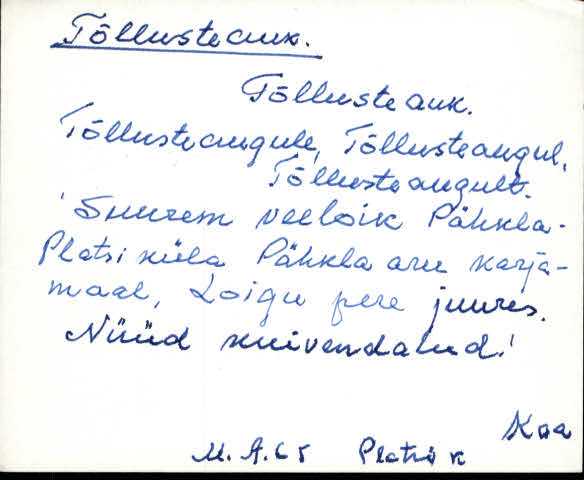 Tõllusteauk.
Tõllusteauk.
Tõllusteaugule, Tõllusteaugul,
Tõllusteaugult.
Suurem veeloik Pähkla-
Platsi küla Pähkla aru karja-
maal, Loigu pere juures.
Nüüd kuivendatud.
Kaa
M. A. 65 Platsi k